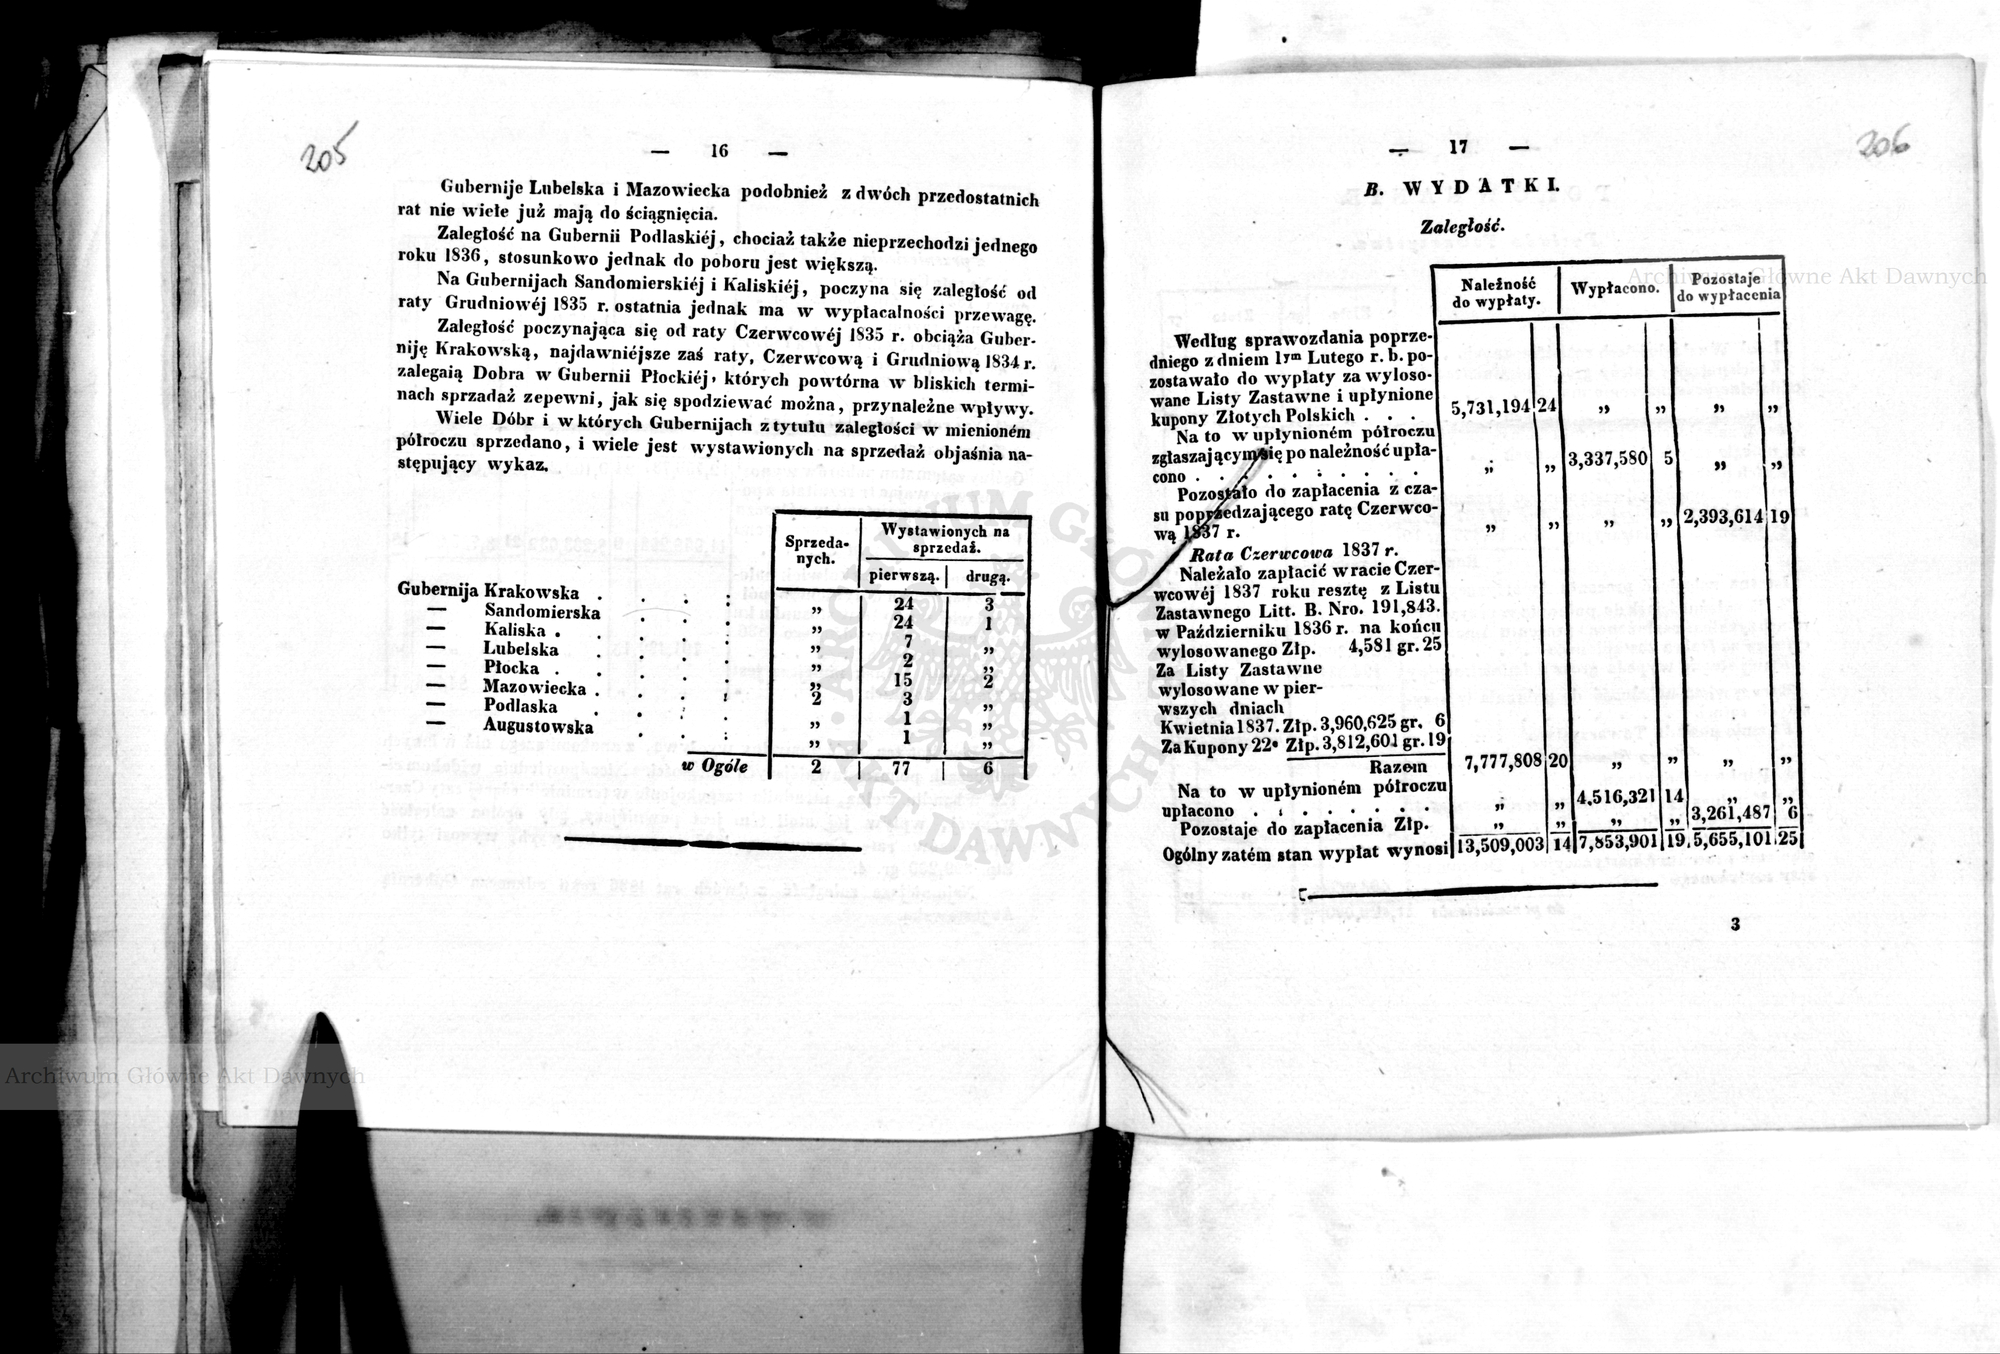 205
— 16 —
Gubernije Lubelska i Mazowiecka podobnież z dwóch przedostatnich
rat nie wiele już mają do ściągnięcia.
Zaległość na Gubernii Podlaskiéj, chociaż także nieprzechodzi jednego
roku 1836, stosunkowo jednak do poboru jest większą.
Na Gubernijach Sandomierskiéj i Kaliskiéj, poczyna się zaległość od
raty Grudniowéj 1835 r. ostatnia jednak ma w wypłacalności przewagę.
Zaległość poczynająca się od raty Czerwcowéj 1835 r. obciąża Guber-
niję Krakowską, najdawniéjsze zaś raty, Czerwcową i Grudniową 1834 r.
zalegaią Dobra w Gubernii Płockiéj, których powtórna w bliskich termi-
nach sprzadaż zepewni, jak się spodziewać można, przynależne wpływy.
Wiele Dóbr i w których Gubernijach z tytułu zaległości w mienioném
półroczu sprzedano, i wiele jest wystawionych na sprzedaż objaśnia na-
stępujący wykaz.
Sprzeda- nych. | Wystawionych na sprzedaż.
pierwszą. | drugą.
Gubernija Krakowska . . . . „ 24 3
— Sandomierska . . . „ 24 1
— Kaliska . . . . . „ 7 „
— Lubelska . . . . „ 2 „
— Płocka . . . . . „ 15 2
— Mazowiecka . . . . 2 3 „
— Podlaska . . . . „ 1 „
— Augustowska . . . „ 1 „
w Ogóle 2 77 6
206
— 17 —
B. WYDATKI.
Zaległość.
Należność do wypłaty. | Wypłacono. | Pozostaje do wypłacenia
Według sprawozdania poprze-
dniego z dniem 1ym Lutego r. b. po-
zostawało do wypłaty za wyloso-
wane Listy Zastawne i upłynione
kupony Złotych Polskich . . . 5,731,194 24 „ „ „ „
Na to w upłynioném półroczu
zgłaszającym się po należność upła-
cono . . . . . . . . „ „ 3,337,580 5 „ „
Pozostało do zapłacenia z cza-
su poprzedzającego ratę Czerwco-
wą 1837 r. „ „ „ „ 2,393,614 19
Rata Czerwcowa 1837 r.
Należało zapłacić w racie Czer-
wcowéj 1837 roku resztę z Listu
Zastawnego Litt. B. Nro. 191,843.
w Październiku 1836 r. na końcu
wylosowanego Złp. 4,581 gr. 25
Za Listy Zastawne
wylosowane w pier-
wszych dniach
Kwietnia 1837. Złp. 3,960,625 gr. 6
Za Kupony 22e Złp. 3,812,601 gr. 19
Razem 7,777,808 20 „ „ „ „
Na to w upłynioném półroczu
upłacono . . . . . . . „ „ 4,516,321 14 „ „
Pozostaje do zapłacenia Złp. „ „ „ „ 3,261,487 6
Ogólny zatém stan wypłat wynosi 13,509,003 14 7,853,901 19 5,655,101 25
3
Archiwum Główne Akt Dawnych
Archiwum Główne Akt Dawnych
ARCHIWUM GŁÓWNE AKT DAWNYCH